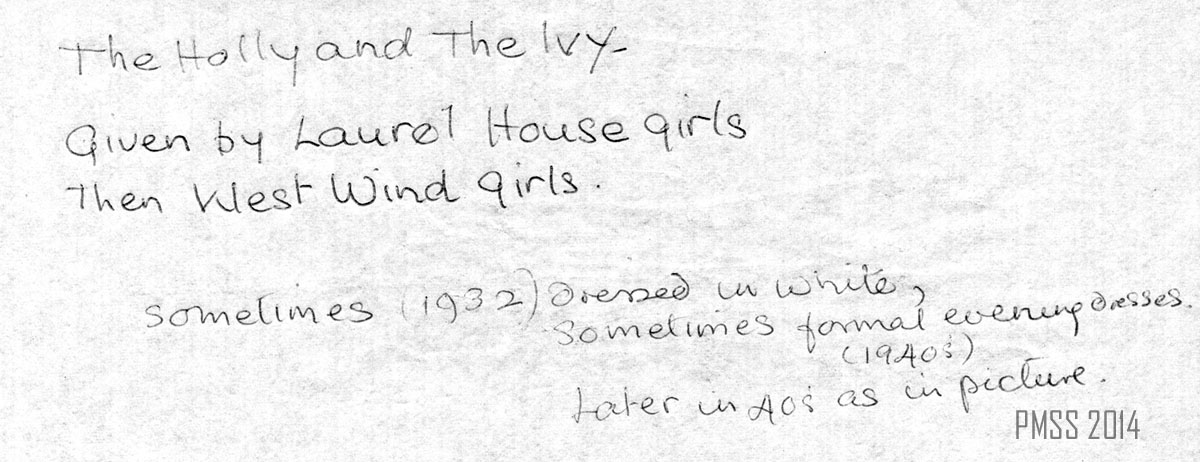 The Holly and The Ivy-
Given by Laurel House girls
Then West Wind girls.
sometimes (1932) dressed in white,
sometimes formal evening dresses.
(1940's)
Later in 40's as in picture.
PMSS 2014